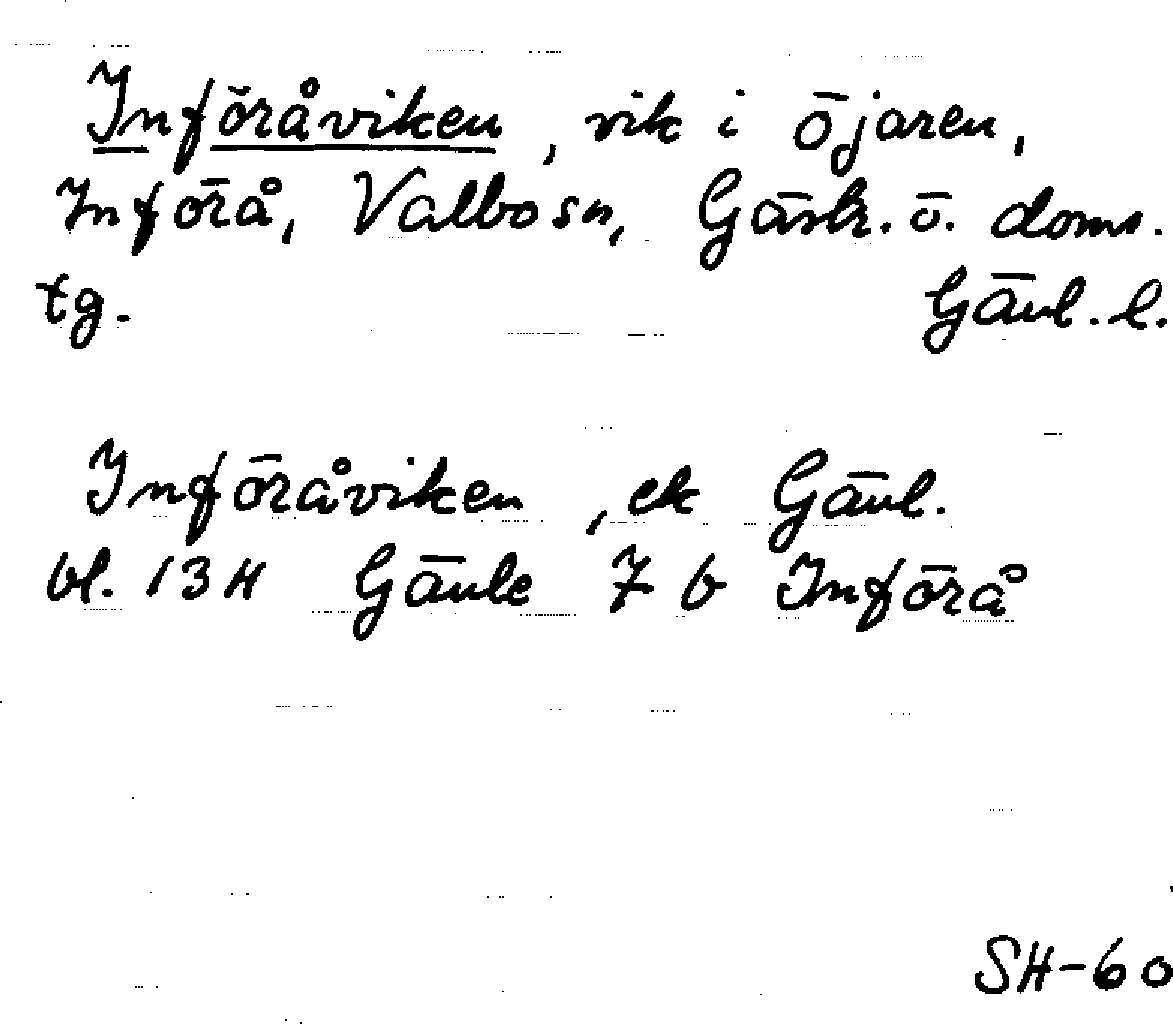 Införåviken, vik i Öjaren,
Införå, Valbo sn, Gästr. ö. doms.
tg. Gävl. l.
Införåviken, ek Gävl.
bl. 13 H Gävle 7 b Införå
SH-60